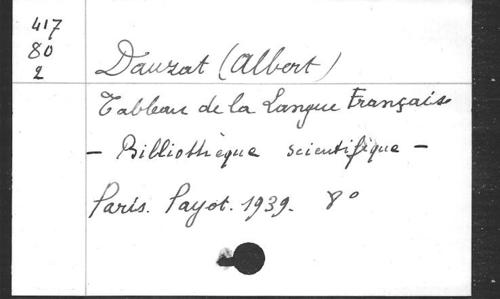 417
80
2
Dauzat (Albert)
Tableau de la Langue Française
- Bibliothèque scientifique -
Paris. Payot. 1939. 8°